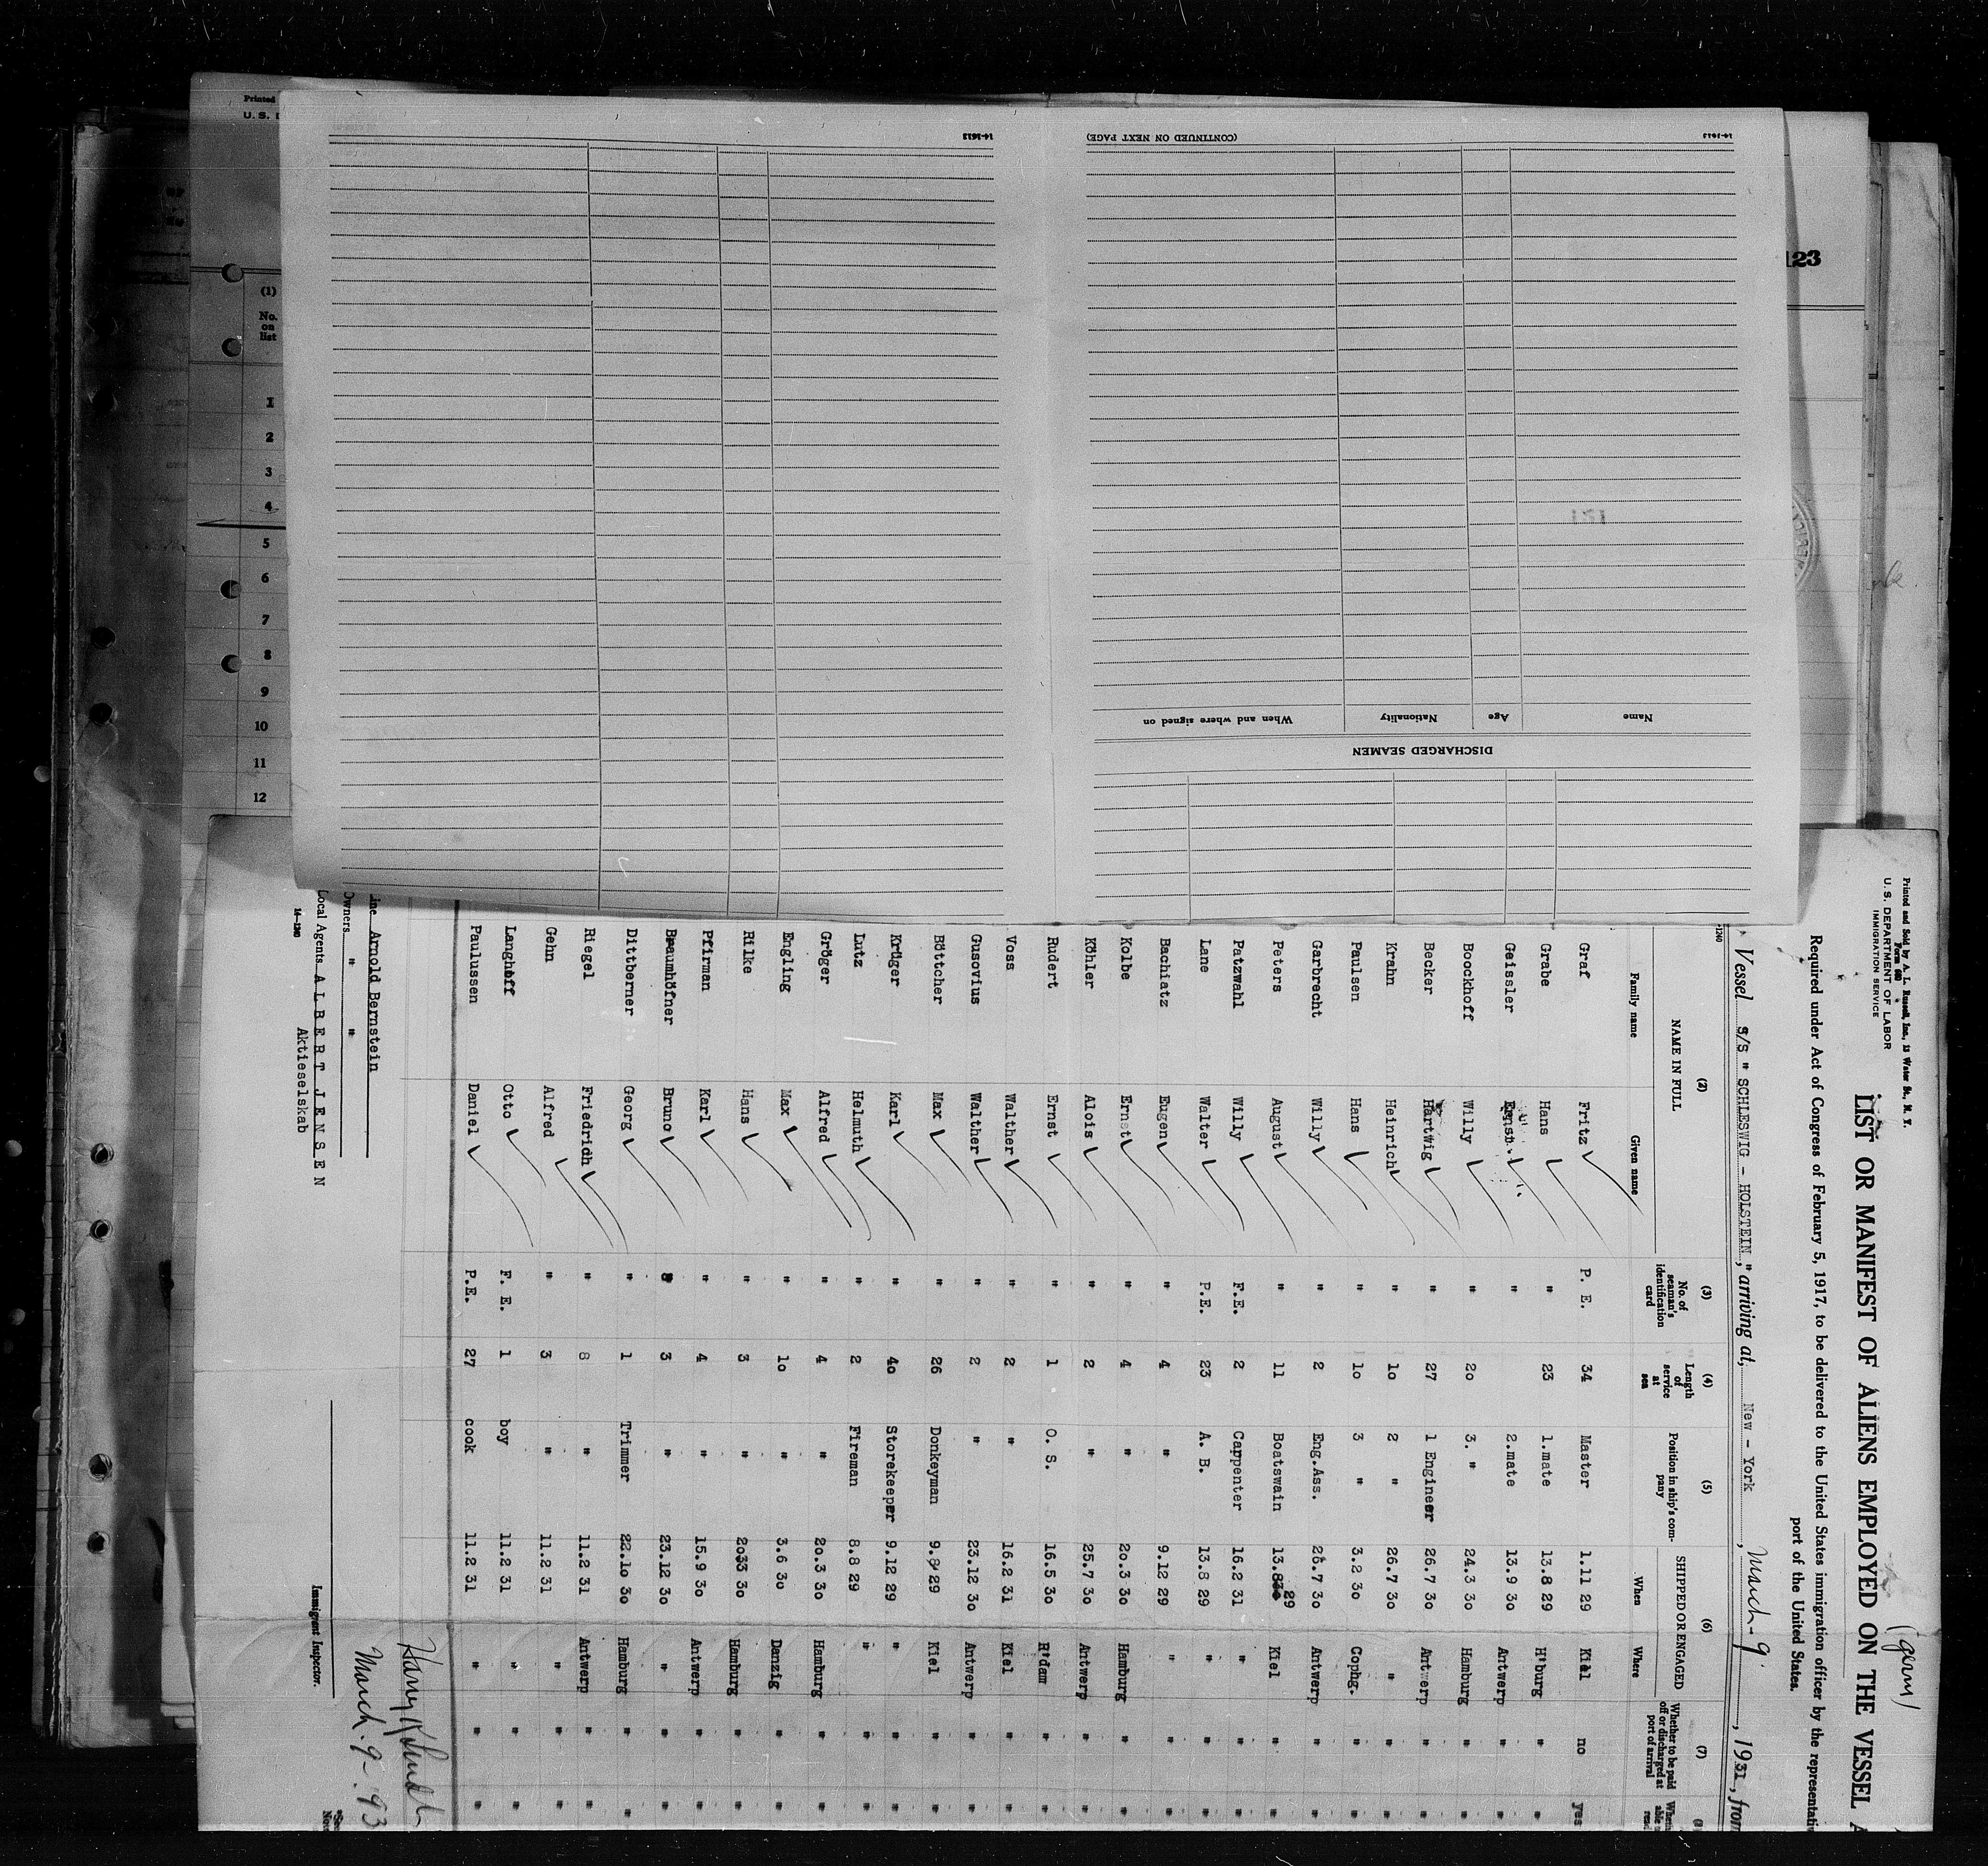 Printed
U. S. D
(1)
No.
on
list
1
2
3
4
5
6
7
8
9
10
11
12
123
14-1613
(CONTINUED ON NEXT PAGE)
14-1613
DISCHARGED SEAMEN
Name Age Nationality When and where signed on
Printed and Sold by A. L. Russell, Inc., 15 Water St., N. Y.
Form 680
U. S. DEPARTMENT OF LABOR
IMMIGRATION SERVICE
(germ)
LIST OR MANIFEST OF ALIENS EMPLOYED ON THE VESSEL A
Required under Act of Congress of February 5, 1917, to be delivered to the United States immigration officer by the representativ
port of the United States.
Vessel S/S " SCHLESWIG - HOLSTEIN ", arriving at, New - York, March - 9, 1931, from
(2) (3) (4) (5) (6) (7)
NAME IN FULL No. of seaman's identification card Length of service at sea Position in ship's company SHIPPED OR ENGAGED Whether to be paid off or discharged at port of arrival
Family name Given name When Where
Graf Fritz P. E. 34 Master 1.11 29 Kiel no yes
Grabe Hans " 23 1.mate 13.8 29 H'burg " "
Geissler Ernst " 2.mate 13.9 30 Antwerp " "
Boockhoff Willy " 20 3. " 24.3 30 Hamburg " "
Becker Hartwig " 27 1 Engineer 26.7 30 Antwerp " "
Krahn Heinrich " 10 2 " 26.7 30 " " "
Paulsen Hans " 10 3 " 3.2 30 Cophg. " "
Garbrecht Willy " 2 Eng.Ass. 26.7 30 Antwerp " "
Peters August " 11 Boatswain 13.8 29 Kiel " "
Patzwahl Willy F.E. 2 Carpenter 16.2 31 " " "
Lane Walter P.E. 23 A. B. 13.8 29 " " "
Bachiatz Eugen " 4 " 9.12 29 " " "
Kolbe Ernst " 4 " 20.3 30 Hamburg " "
Köhler Alois " 2 " 25.7 30 Antwerp " "
Rudert Ernst " 1 O. S. 16.5 30 R'dam " "
Voss Walther " 2 " 16.2 31 Kiel " "
Gusovius Walther " 2 " 23.12 30 Antwerp " "
Böttcher Max " 26 Donkeyman 9.8 29 Kiel " "
Krüger Karl " 40 Storekeeper 9.12 29 " " "
Lutz Helmuth " 2 Fireman 8.8 29 " " "
Gröger Alfred " 4 " 20.3 30 Hamburg " "
Engling Max " 10 " 3.6 30 Danzig " "
Rilke Hans " 3 " 2033 30 Hamburg " "
Pfirman Karl " 4 " 15.9 30 Antwerp " "
Braumhöfner Bruno " 3 " 23.12 30 " " "
Dittberner Georg " 1 Trimmer 22.10 30 Hamburg " "
Riegel Friedrich " 8 " 11.2 31 Antwerp " "
Gehn Alfred " 3 " 11.2 31 " " "
Langhoff Otto F. E. 1 boy 11.2 31 " " "
Paulussen Daniel P.E. 27 cook 11.2 31 " " "
ine Arnold Bernstein
Owners " "
Local Agents A L B E R T J E N S E N
Aktieselskab
14-1240
March - 9 - 93
Immigrant Inspector.